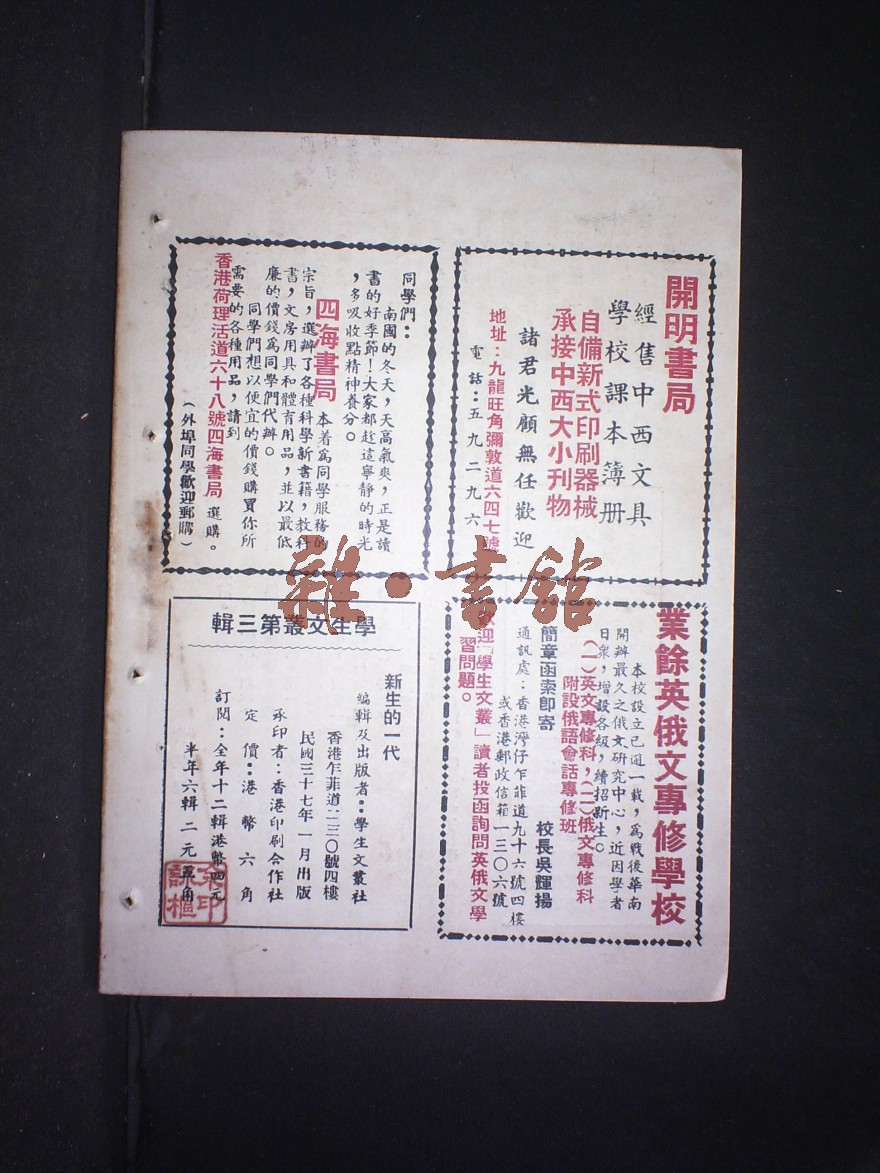 開明書局
經售中西文具
學校課本簿册
自備新式印刷器械
承接中西大小刊物
諸君光顧無任歡迎
地址：九龍旺角彌敦道六四七號
電話：五九二九六
同學們：
南國的冬天，天高氣爽，正是讀
書的好季節！大家都趁這寧靜的時光
，多吸收點精神養分。
四海書局 本着爲同學服務的
宗旨，選辦了各種科學新書籍，教科
書，文房用具和體育用品，並以最低
廉的價錢爲同學們代辦。
同學們想以便宜的價錢購買你所
需要的各種用品，請到
香港荷理活道六十八號四海書局 選購。
（外埠同學歡迎郵購）
業餘英俄文專修學校
本校設立已逾一載，爲戰後華南
開辦最久之俄文研究中心，近因學者
日衆，增設各級，續招新生。
（一）英文專修科，（二）俄文專修科
附設俄語會話專修班
簡章函索即寄
校長吳輝揚
通訊處：香港灣仔乍菲道九十六號四樓
或香港郵政信箱一三〇六號
歡迎「學生文叢」讀者投函詢問英俄文學
習問題。
學生文叢第三輯
新生的一代
編輯及出版者：學生文叢社
香港乍菲道二三〇號四樓
民國三十七年一月出版
承印者：香港印刷合作社
定價：港幣六角
訂閱：全年十二輯港幣四元
半年六輯二元五角
雜·書館